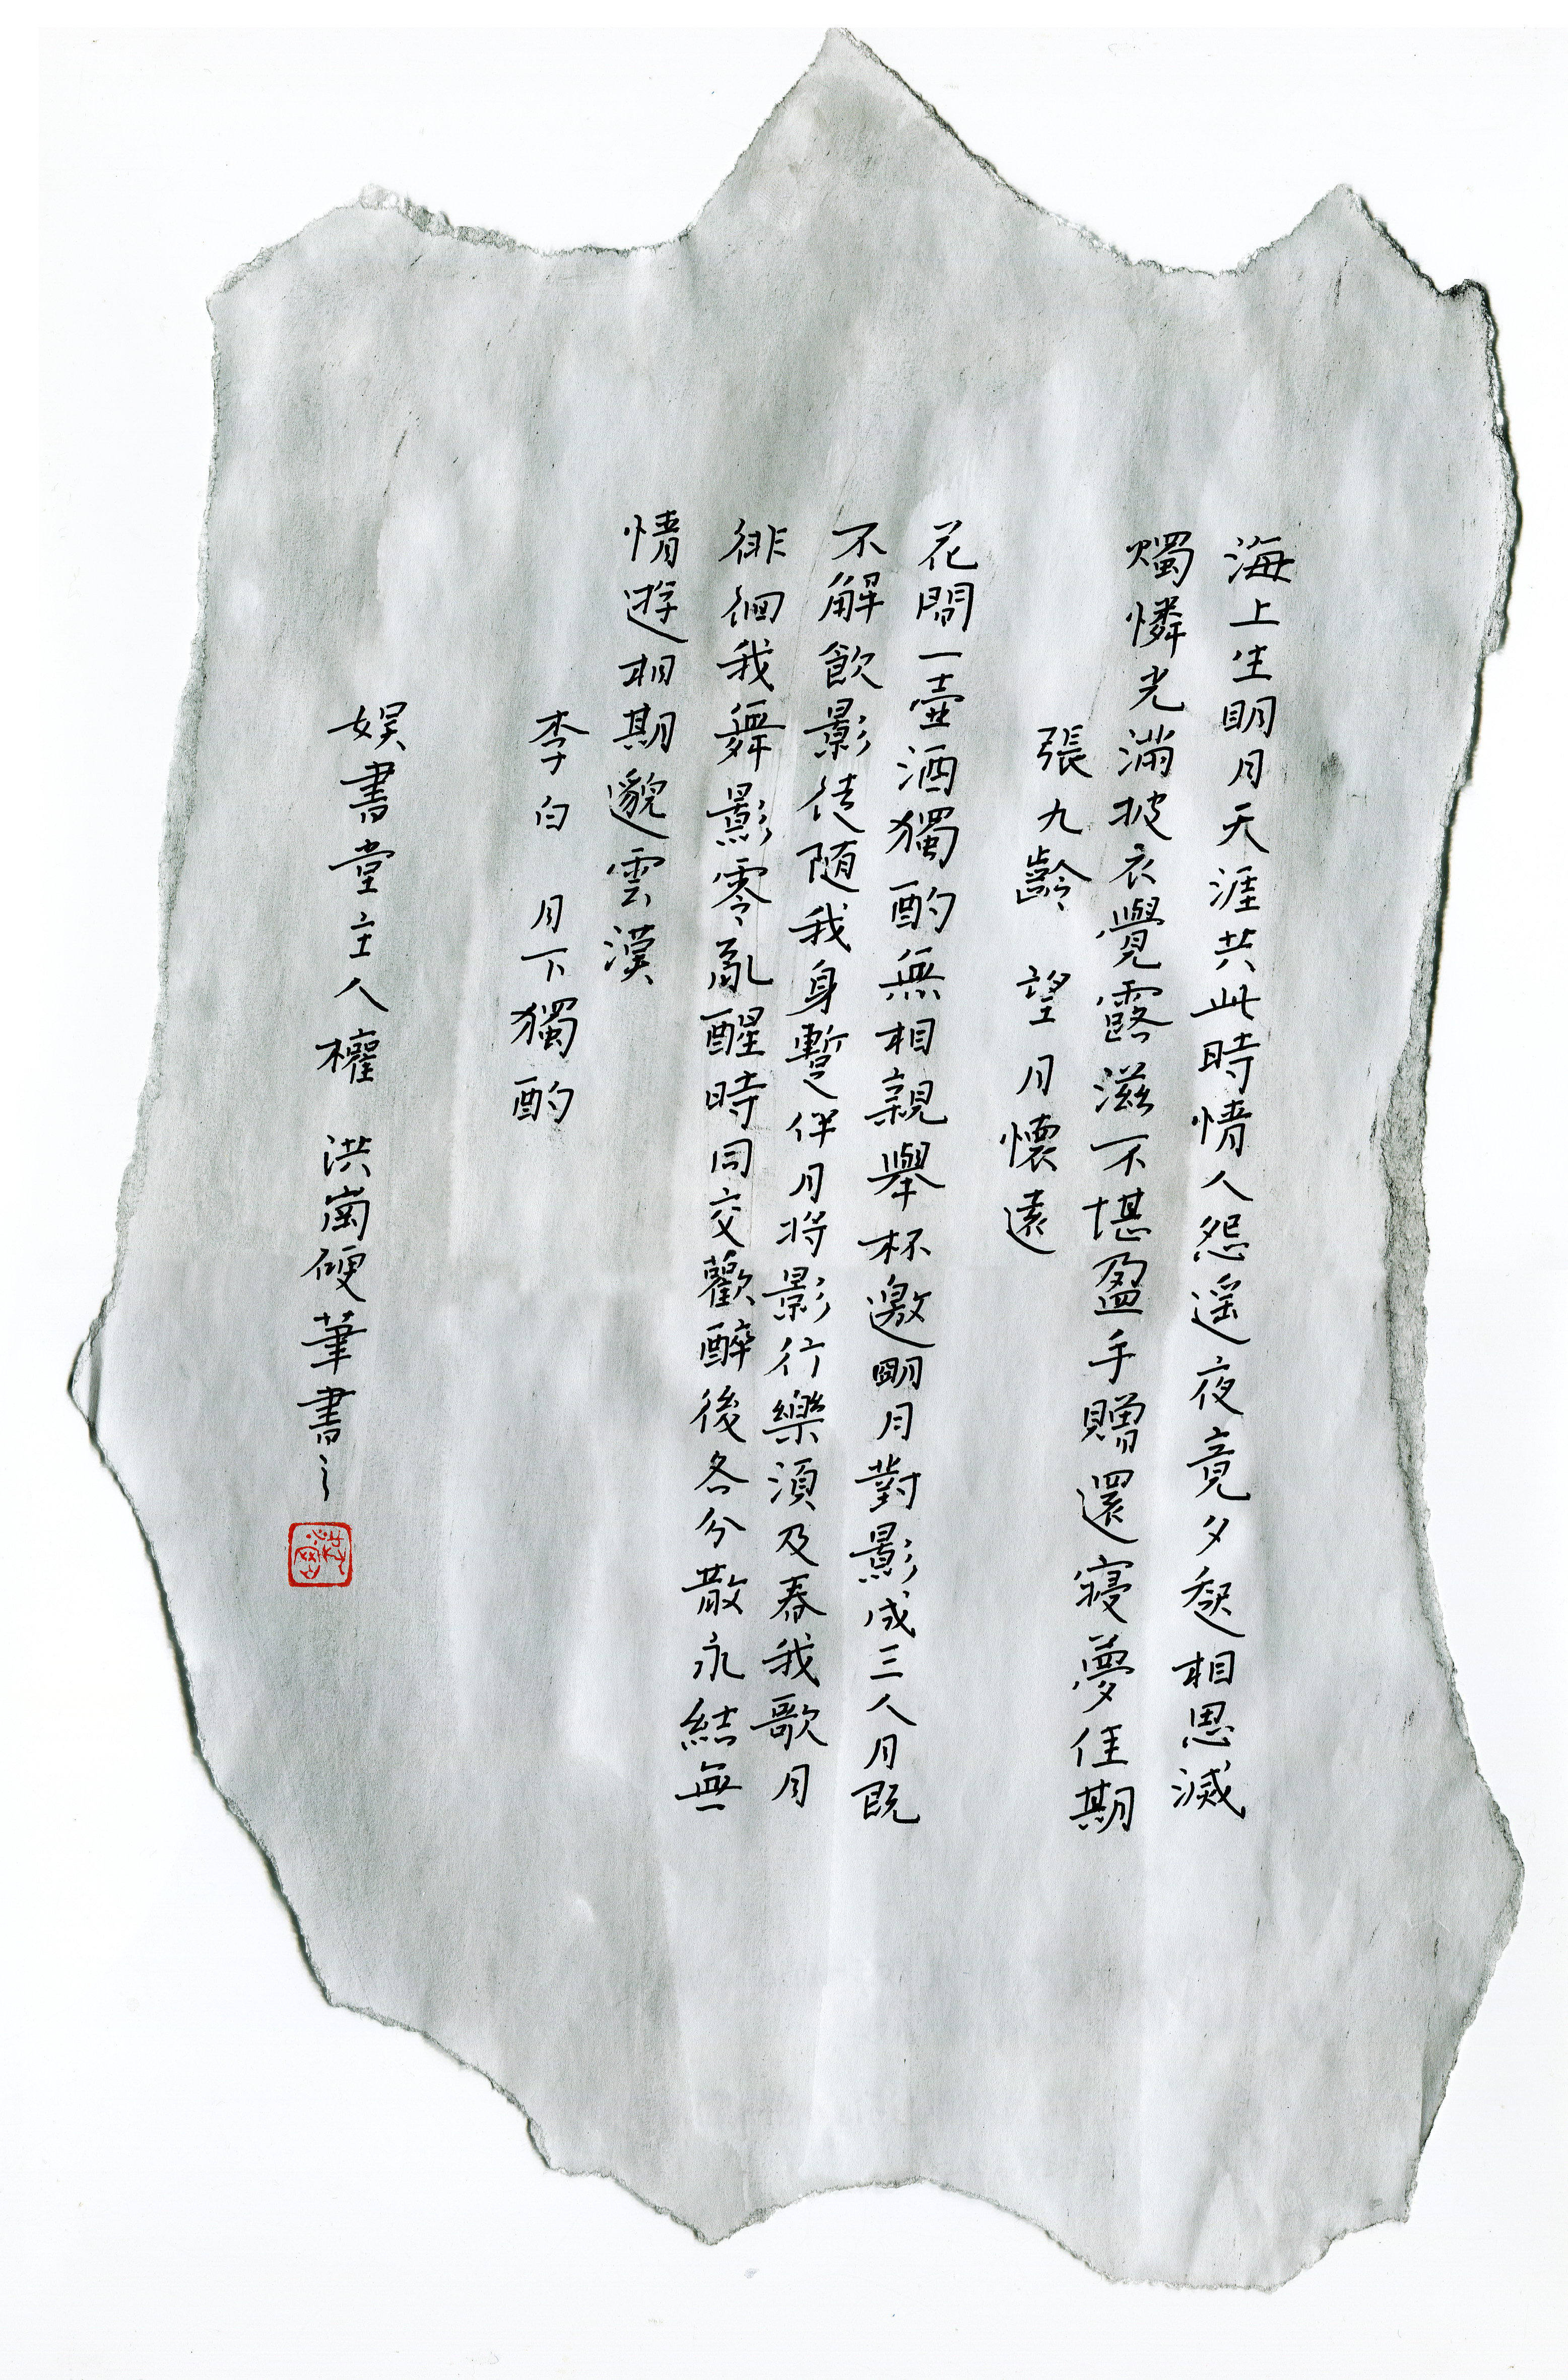 海上生明月天涯共此時情人怨遥夜竟夕起相思滅
燭憐光滿披衣覺露滋不堪盈手贈還寢夢佳期
張九齡 望月懷遠
花間一壺酒獨酌無相親舉杯邀明月對影成三人月既
不解飲影徒随我身暫伴月將影行樂須及春我歌月
徘徊我舞影零亂醒時同交歡醉後各分散永結無
情遊相期邈雲漢
李白 月下獨酌
娱書堂主人權 洪崗硬筆書之